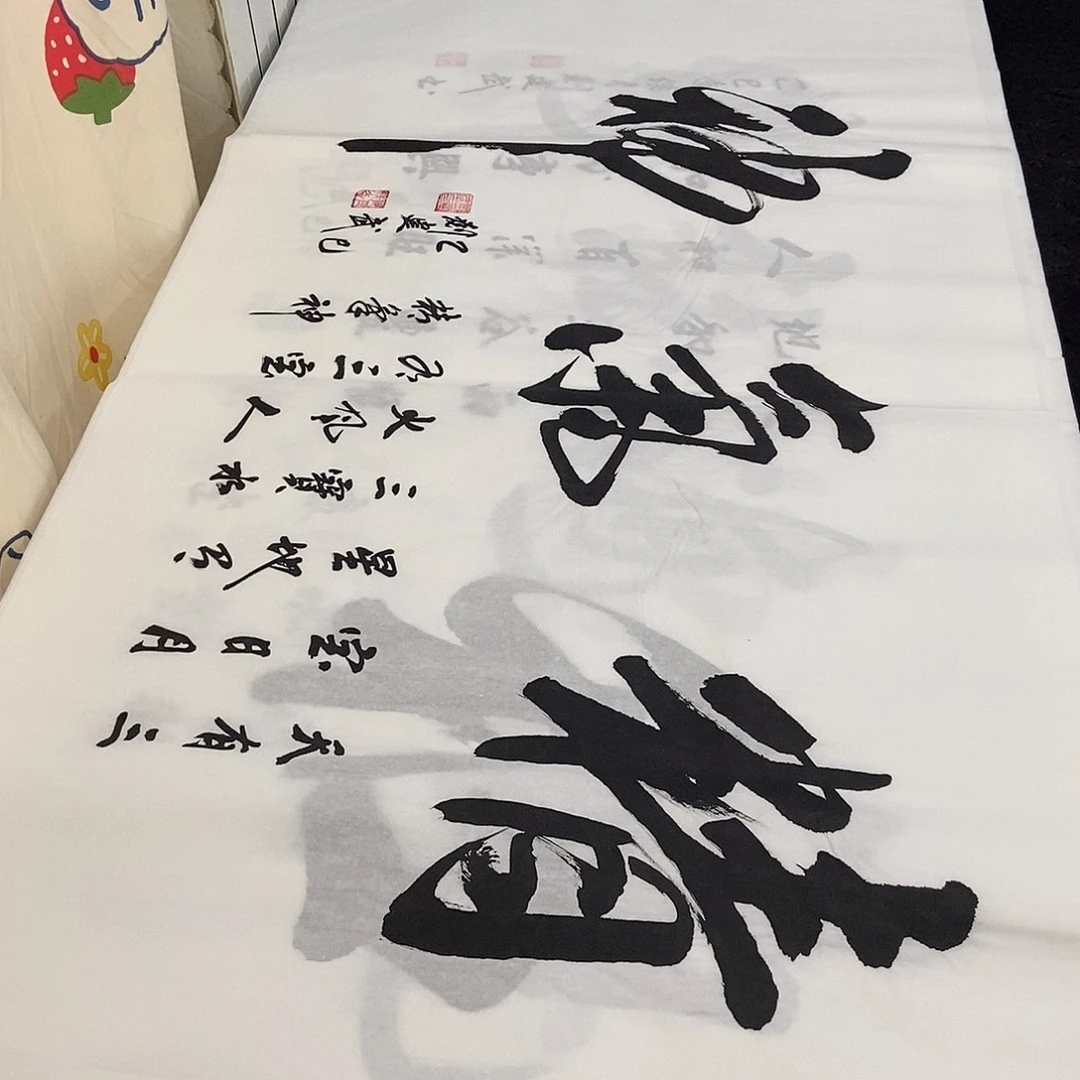 精氣神
天有三
宝日月
星地有
三寶水
火风人
有三宝
精氣神
乙巳